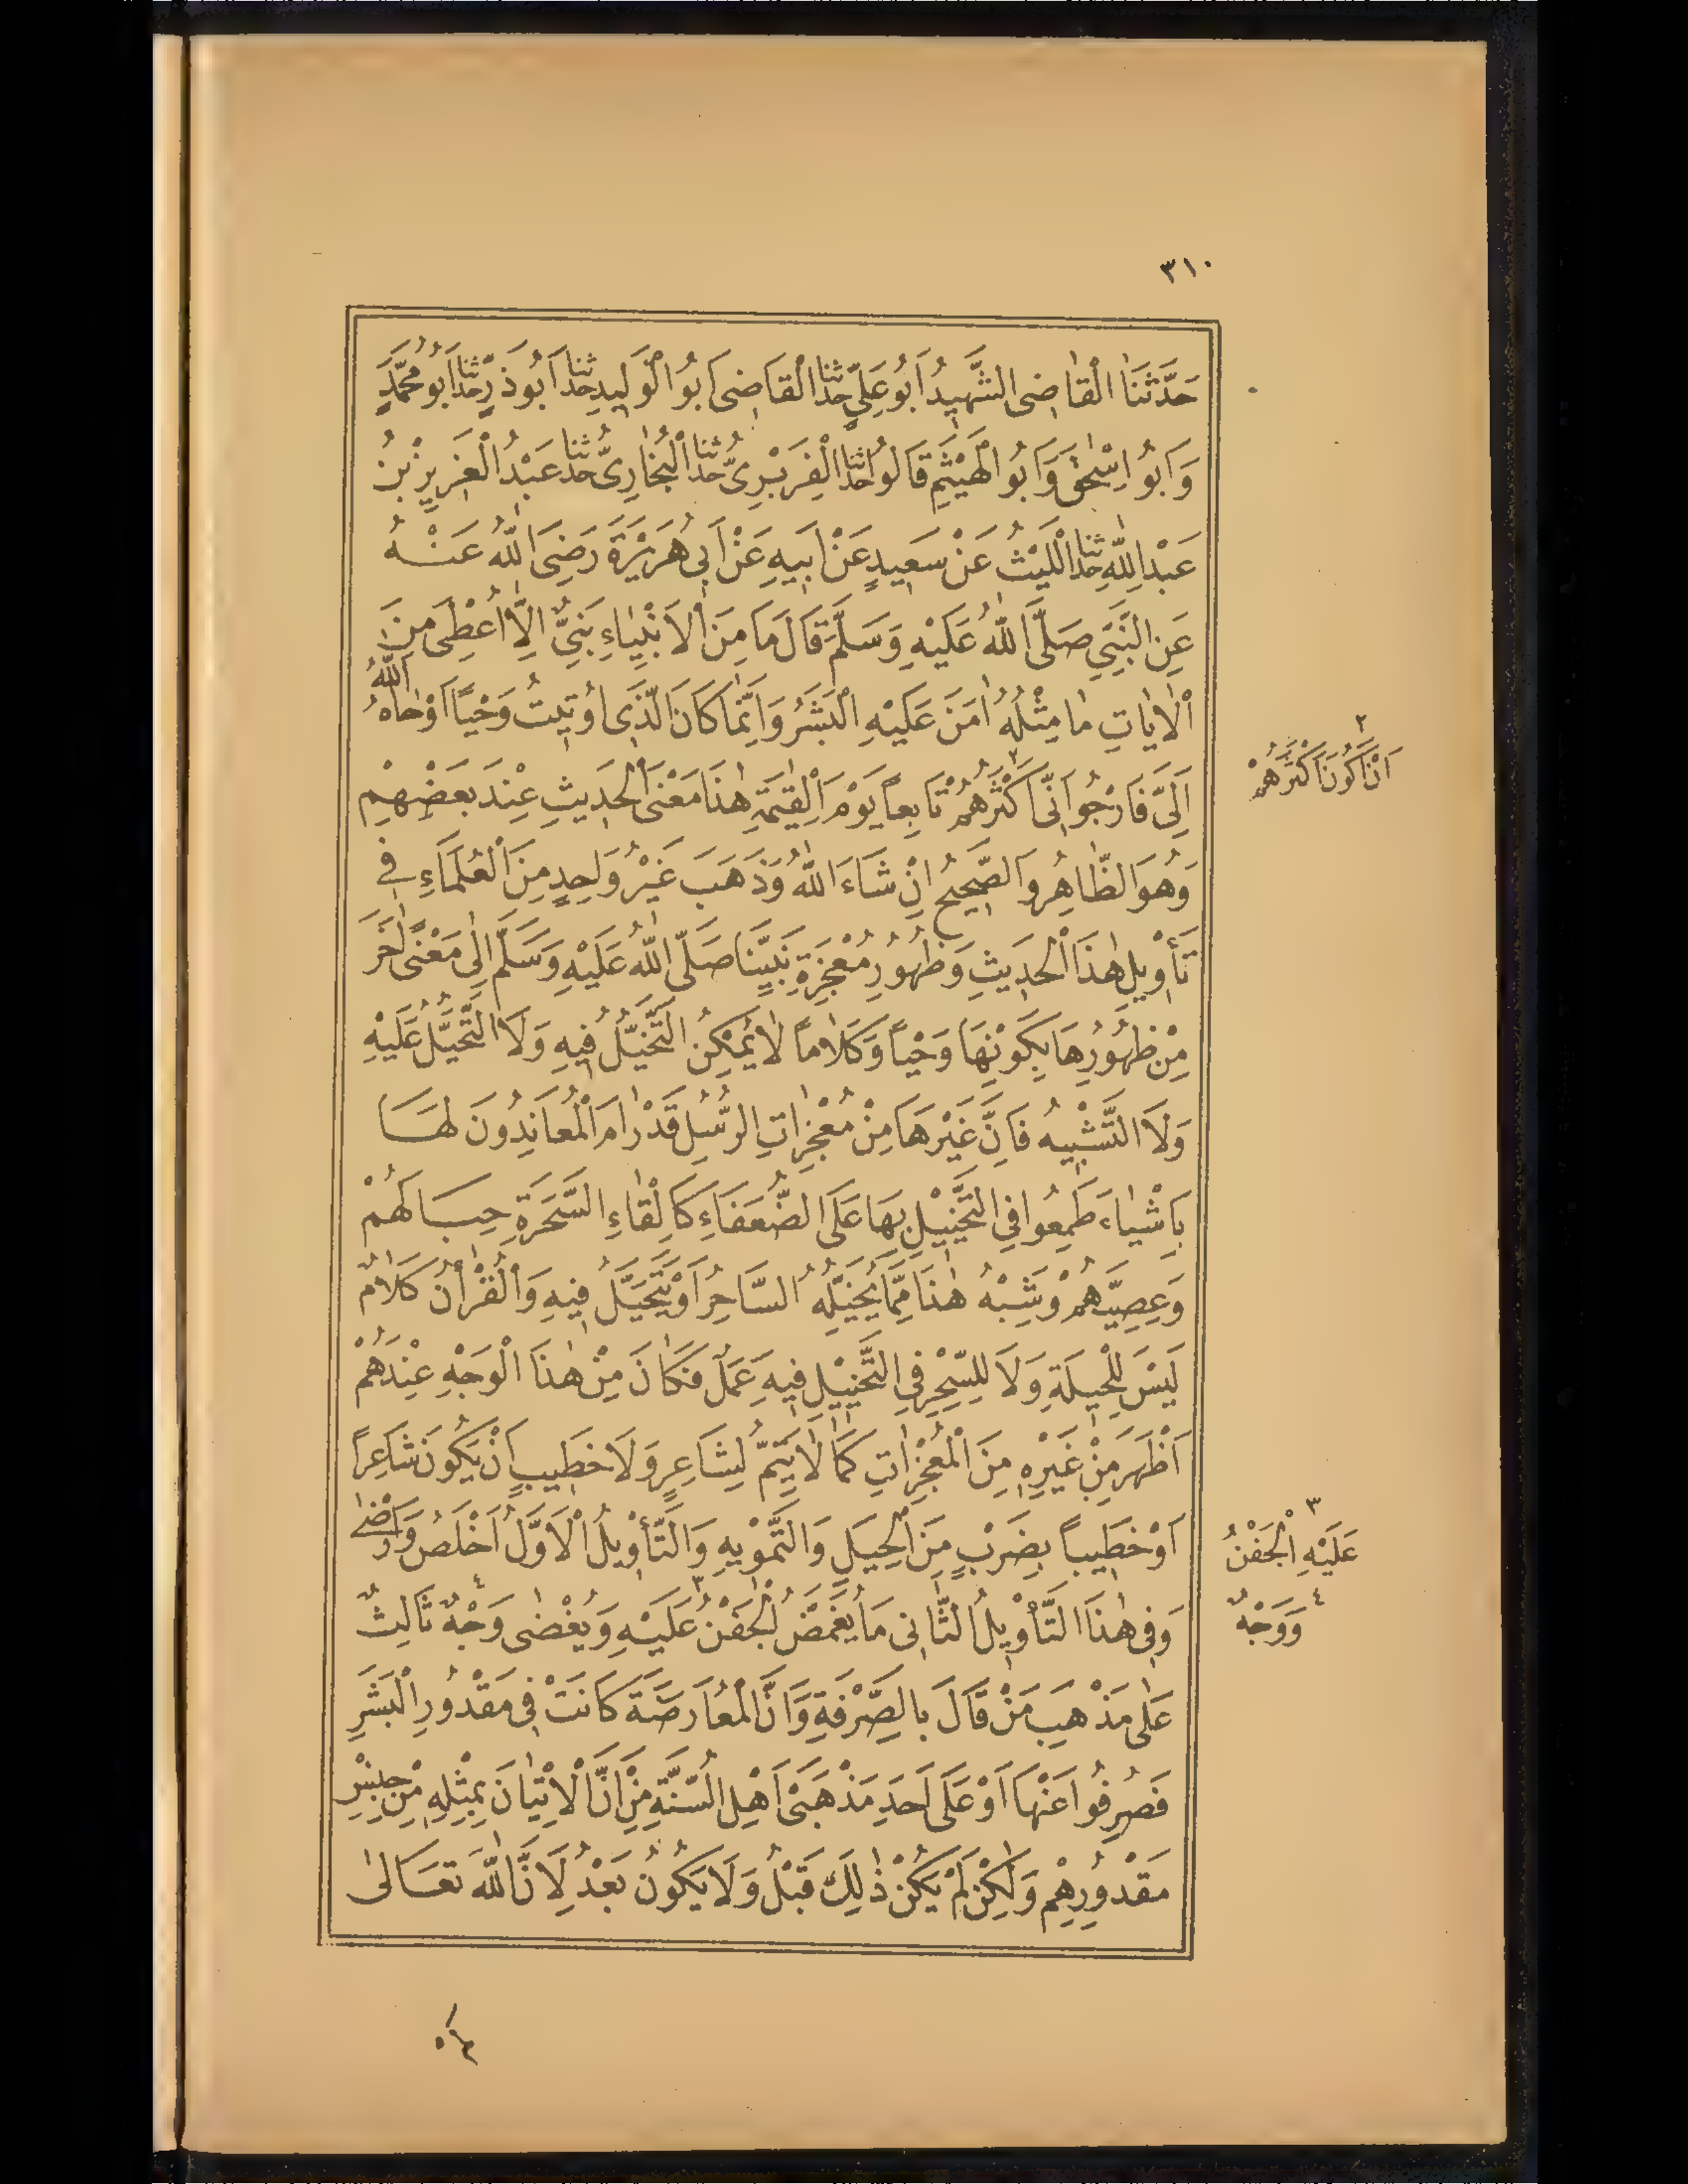 ٣١٠
حَدَّثَنَا الْقَاضِى الشَّهِيدُ اَبُو عَلِيٍّ حَدَّثَنَا الْقَاضِى اَبُو الْوَلِيدِ حَدَّثَنَا اَبُو ذَرٍّ حَدَّثَنَا اَبُو مُحَمَّدٍ
وَ اَبُو اِسْحٰقَ وَ اَبُو الْهَيْثَمِ قَالُوا حَدَّثَنَا الْفِرَبْرِىُّ حَدَّثَنَا الْبُخَارِىُّ حَدَّثَنَا عَبْدُ الْعَزِيزِ بْنُ
عَبْدِ اللّٰهِ حَدَّثَنَا اللَّيْثُ عَنْ سَعِيدٍ عَنْ اَبِيهِ عَنْ اَبِى هُرَيْرَةَ رَضِىَ اللّٰهُ عَنْهُ
عَنِ النَّبِىِّ صَلَّى اللّٰهُ عَلَيْهِ وَسَلَّمَ قَالَ مَا مِنَ الْاَنْبِيَاءِ نَبِىٌّ اِلَّا اُعْطِىَ مِنَ
الْاٰيَاتِ مَا مِثْلُهُ اٰمَنَ عَلَيْهِ الْبَشَرُ وَاِنَّمَا كَانَ الَّذِى اُوتِيتُ وَحْيًا اَوْحَاهُ اللّٰهُ
اِلَىَّ فَاَرْجُو اَنِّى اَكْثَرُهُمْ ٢ تَابِعاً يَوْمَ الْقِيٰمَةِ هٰذَا مَعْنَى الْحَدِيثِ عِنْدَ بَعْضِهِمْ
٢ اَنْ اَكُونَ اَكْثَرَهُمْ
وَهُوَ الظَّاهِرُ وَالصَّحِيحُ اِنْ شَاءَ اللّٰهُ وَذَهَبَ غَيْرُ وَاحِدٍ مِنَ الْعُلَمَاءِ فِى
تَأْوِيلِ هٰذَا الْحَدِيثِ وَظُهُورِ مُعْجِزَةِ نَبِيِّنَا صَلَّى اللّٰهُ عَلَيْهِ وَسَلَّمَ اِلٰى مَعْنًى اٰخَرَ
مِنْ ظُهُورِهَا بِكَوْنِهَا وَحْياً وَكَلَاماً لَا يُمْكِنُ التَّخَيُّلُ فِيهِ وَلَا التَّحَيُّلُ عَلَيْهِ
وَلَا التَّشْبِيهُ فَاِنَّ غَيْرَهَا مِنْ مُعْجِزَاتِ الرُّسُلِ قَدْ رَامَ الْمُعَانِدُونَ لَهَا
بِاَشْيَاءَ طَمِعُوا فِى التَّخْيِيلِ بِهَا عَلَى الضُّعَفَاءِ كَاِلْقَاءِ السَّحَرَةِ حِبَالَهُمْ
وَعِصِيَّهُمْ وَشِبْهُ هٰذَا مِمَّا يُخَيِّلُهُ السَّاحِرُ اَوْ يَتَحَيَّلُ فِيهِ وَالْقُرْاٰنُ كَلَامٌ
لَيْسَ لِلْحِيلَةِ وَلَا لِلسِّحْرِ فِى التَّخْيِيلِ فِيهِ عَمَلٌ فَكَانَ مِنْ هٰذَا الْوَجْهِ عِنْدَهُمْ
اَظْهَرَ مِنْ غَيْرِهِ مِنَ الْمُعْجِزَاتِ كَمَا لَا يَتِمُّ لِشَاعِرٍ وَلَا خَطِيبٍ اَنْ يَكُونَ شَاعِراً
اَوْ خَطِيباً بِضَرْبٍ مِنَ الْحِيَلِ وَالتَّمْوِيهِ وَالتَّأْوِيلُ الْاَوَّلُ اَخْلَصُ وَاَرْضٰى
٣ عَلَيْهِ الْجَفْنُ
وَفِى هٰذَا التَّأْوِيلِ الثَّانِى مَا يُغَمَّضُ الْجَفْنُ ٣ عَلَيْهِ وَيُغْضٰى وَجْهٌ ٤ ثَالِثٌ
٤ وَوَجْهٌ
عَلٰى مَذْهَبِ مَنْ قَالَ بِالصَّرْفَةِ وَاَنَّ الْمُعَارَضَةَ كَانَتْ فِى مَقْدُورِ الْبَشَرِ
فَصُرِفُوا عَنْهَا اَوْ عَلَى اَحَدِ مَذْهَبَىْ اَهْلِ السُّنَّةِ مِنْ اَنَّ الْاِتْيَانَ بِمِثْلِهِ مِنْ جِنْسِ
مَقْدُورِهِمْ وَلٰكِنْ لَمْ يَكُنْ ذٰلِكَ قَبْلُ وَلَا يَكُونُ بَعْدُ لِاَنَّ اللّٰهَ تَعَالٰى